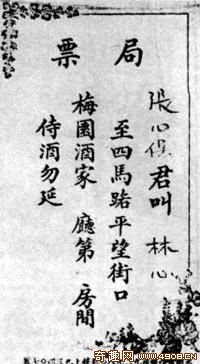 局票
張心俟君叫 林心
至四馬路平望街口
梅園酒家 廳第 房間
侍酒勿延
奇趣网
www.4908.cn